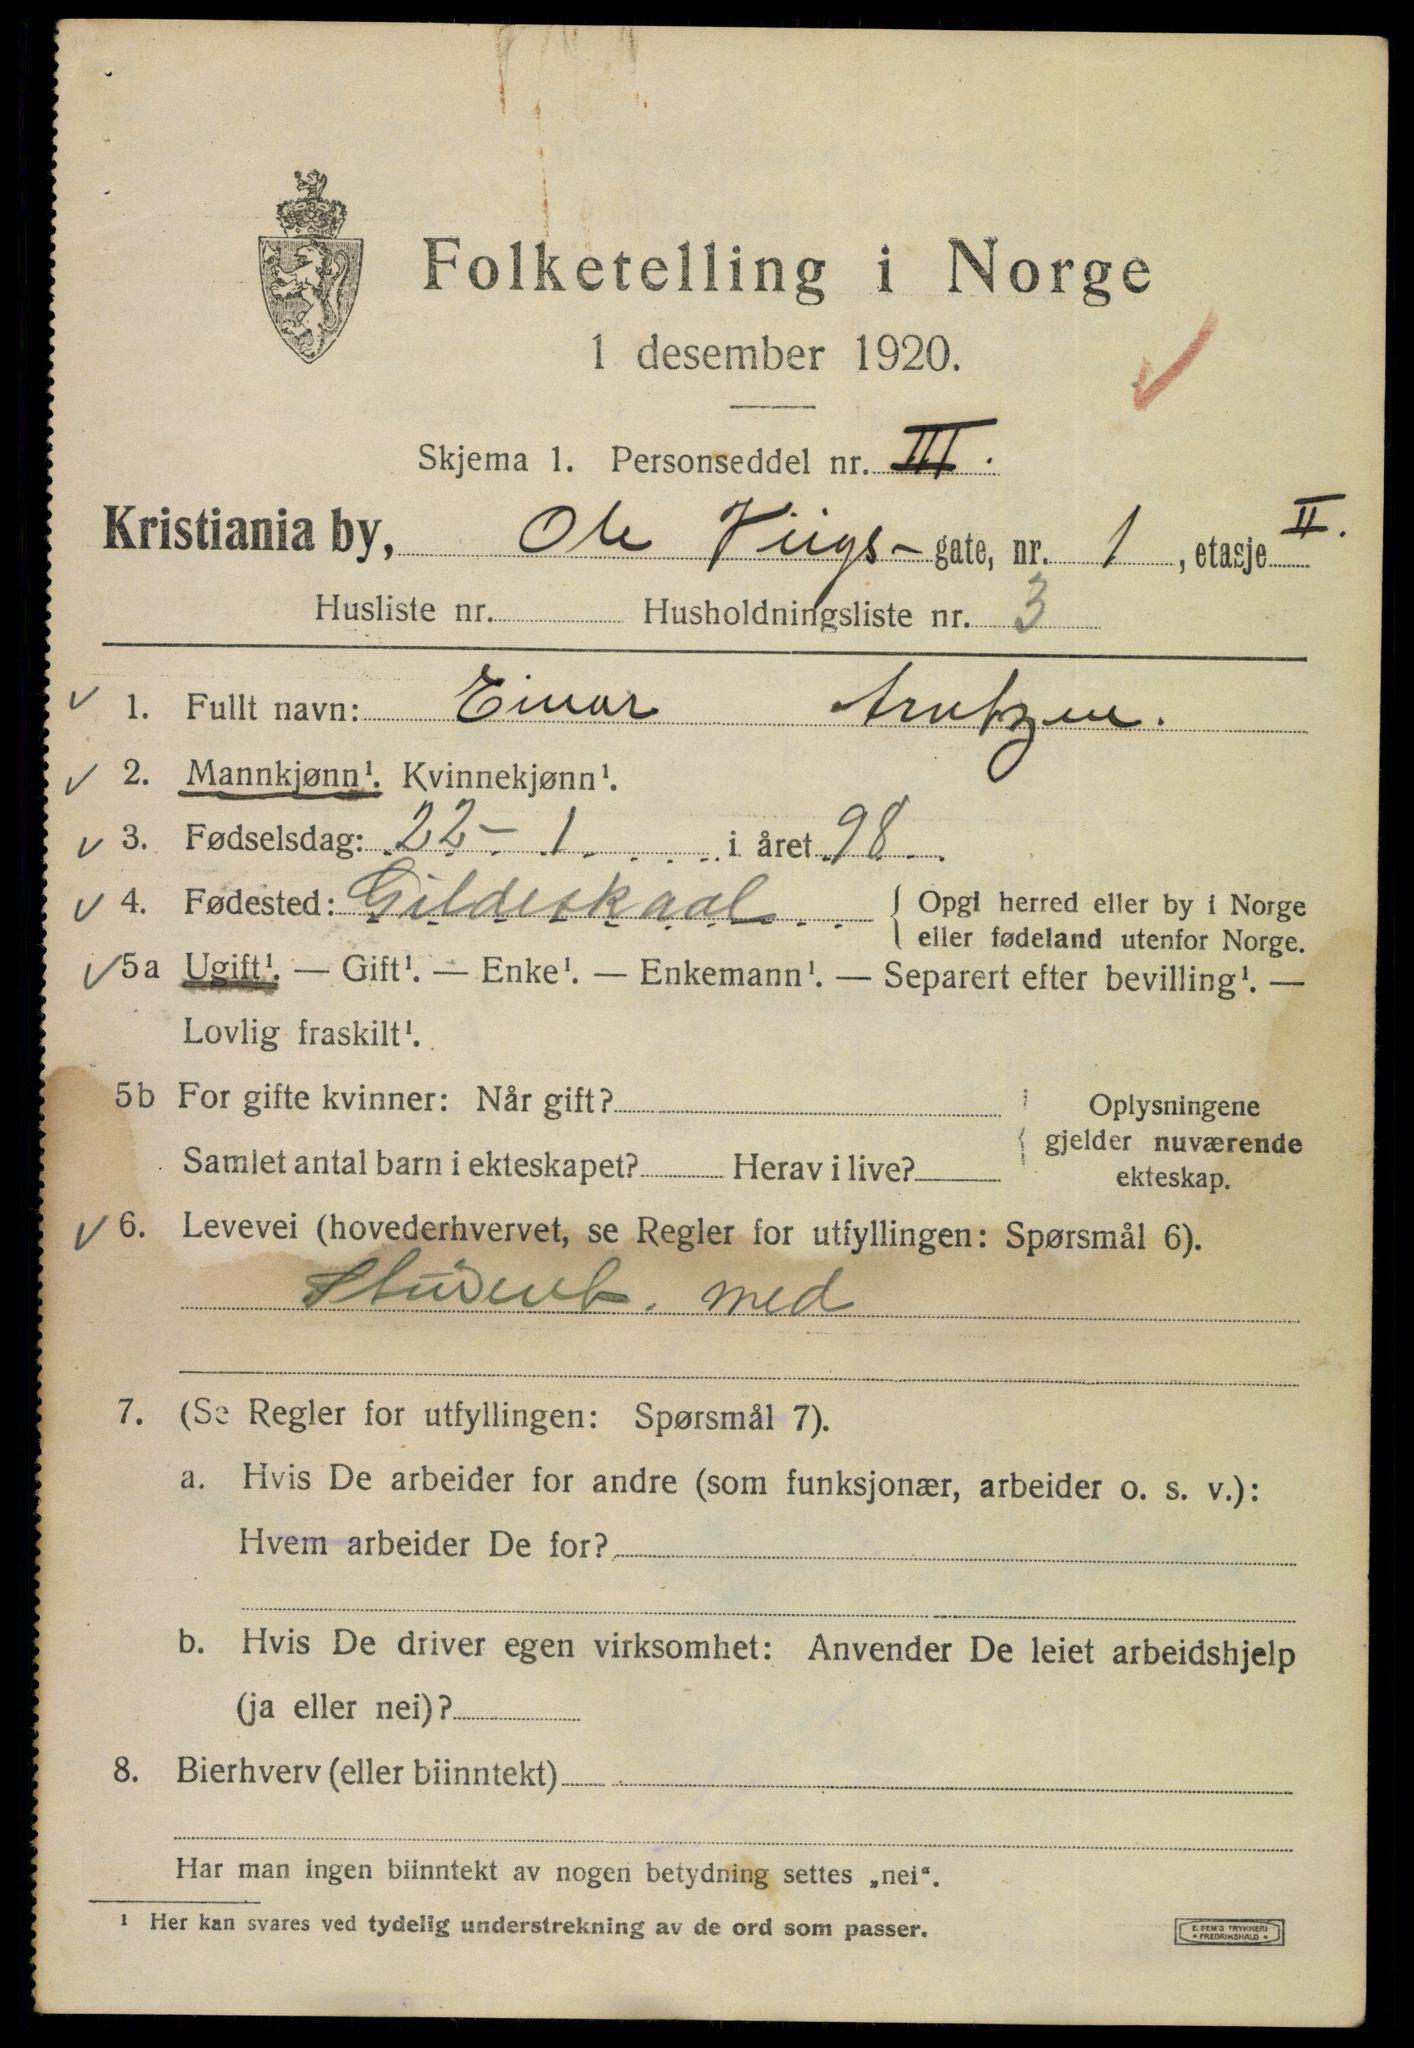 Folketelling i Norge
1 desember 1920.
Skjema 1. Personseddel nr. III.
Kristiania by, Ole Viigs-gate, nr. 1, etasje II.
Husliste nr. Husholdningsliste nr. 3
1. Fullt navn: Einar Arntzen.
2. Mannkjønn¹. Kvinnekjønn¹.
3. Fødselsdag: 22-1 i året 98
4. Fødested: Gildeskaal { Opgi herred eller by i Norge
eller fødeland utenfor Norge.
5a Ugift¹. — Gift¹. — Enke¹. — Enkemann¹. — Separert efter bevilling¹. —
Lovlig fraskilt¹.
5b For gifte kvinner: Når gift?
Samlet antal barn i ekteskapet? Herav i live?
Oplysningene
gjelder nuværende
ekteskap.
6. Levevei (hovederhvervet, se Regler for utfyllingen: Spørsmål 6).
Student. med
7. (Se Regler for utfyllingen: Spørsmål 7).
a. Hvis De arbeider for andre (som funksjonær, arbeider o. s. v.):
Hvem arbeider De for?
b. Hvis De driver egen virksomhet: Anvender De leiet arbeidshjelp
(ja eller nei)?
8. Bierhverv (eller biinntekt)
Har man ingen biinntekt av nogen betydning settes „nei“.
¹ Her kan svares ved tydelig understrekning av de ord som passer.
E. SEM'S TRYKKERI
* FREDRIKSHALD *